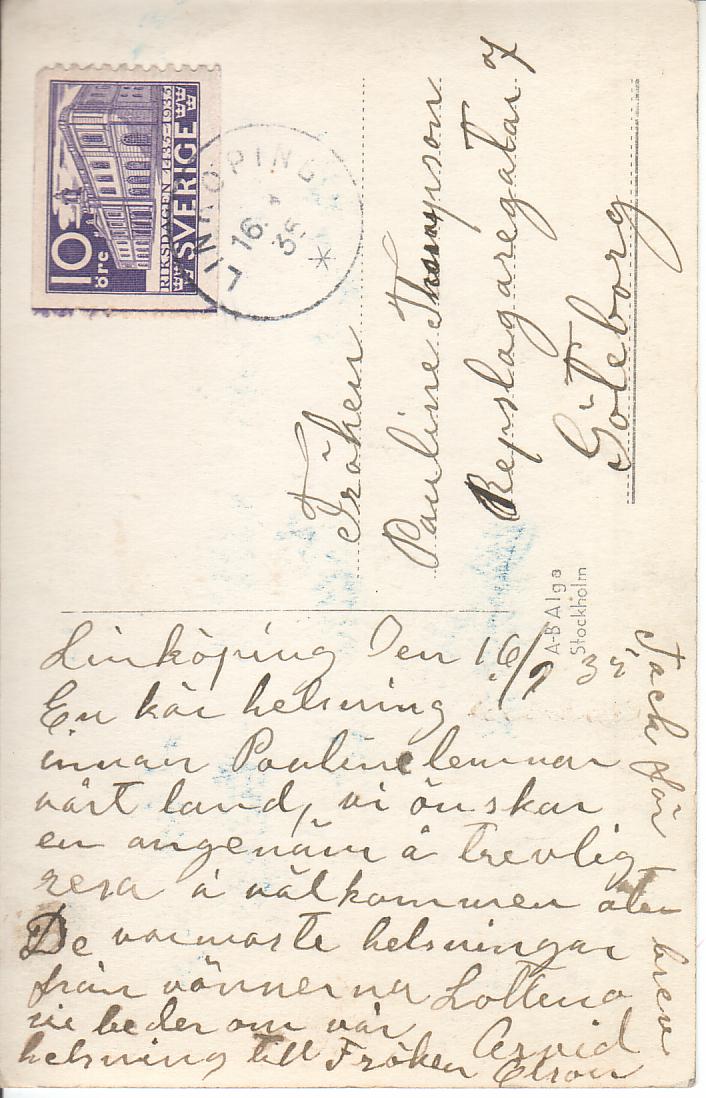 10
öre
RIKSDAGEN 1435-1935
SVERIGE
LINKÖPING
16
35
Fröken
Pauline Thompson
Repslagaregatan 7
Göteborg
A-B Alga
Stockholm
Linköping Den 16/9 35
En kär helsning
innan Pauline lemnar
vårt land, vi önskar
en angenäm å trevlig
resa å välkommen åter
De varmaste helsningar
från vännerna Lottena
vi beder om vår Arvid
helsning till Fröken
Tack för brev